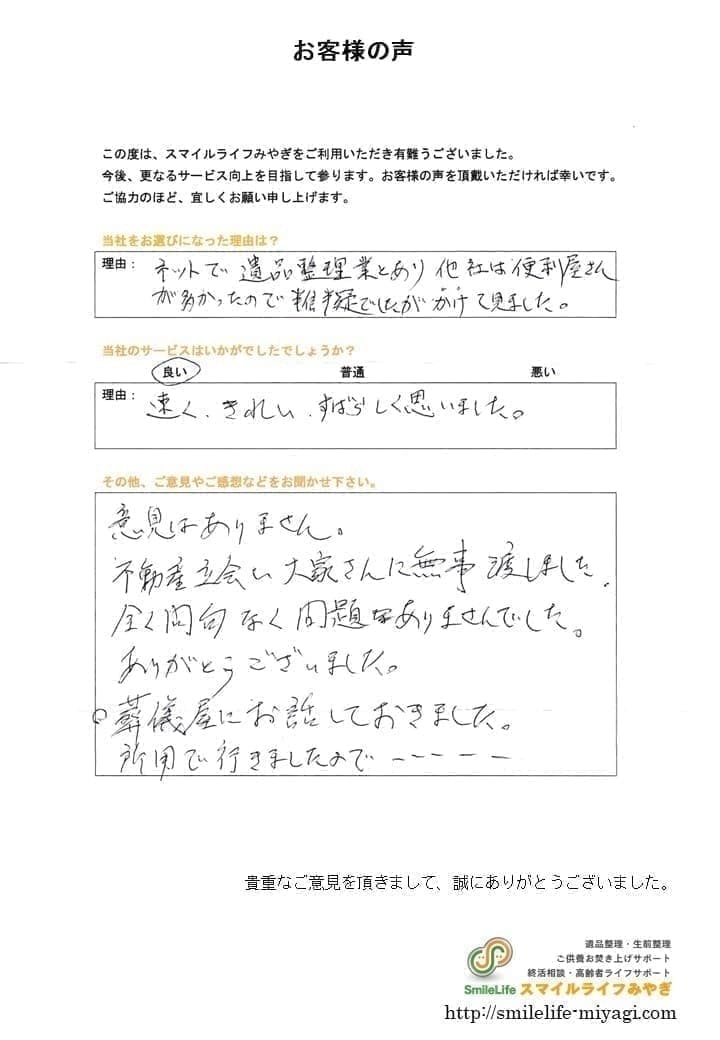 お客様の声
この度は、スマイルライフみやぎをご利用いただき有難うございました。
今後、更なるサービス向上を目指して参ります。お客様の声を頂戴いただければ幸いです。
ご協力のほど、宜しくお願い申し上げます。
当社をお選びになった理由は？
理由： ネットで遺品整理業とあり他社は便利屋さん
が多かったので半信擬でしたがかけて見ました。
当社のサービスはいかがでしたでしょうか？
良い 普通 悪い
理由： 速く、きれい、すばらしく思いました。
その他、ご意見やご感想などをお聞かせ下さい。
意見はありません。
不動産立会い大家さんに無事渡しました、
全く問句なく問題なありませんでした。
ありがとうございました。
○葬儀屋にお話しておきました。
所用で行きましたので－－－－－
貴重なご意見を頂きまして、誠にありがとうございました。
遺品整理・生前整理
ご供養お焚き上げサポート
終活相談・高齢者ライフサポート
SmileLife スマイルライフみやぎ
http://smilelife-miyagi.com